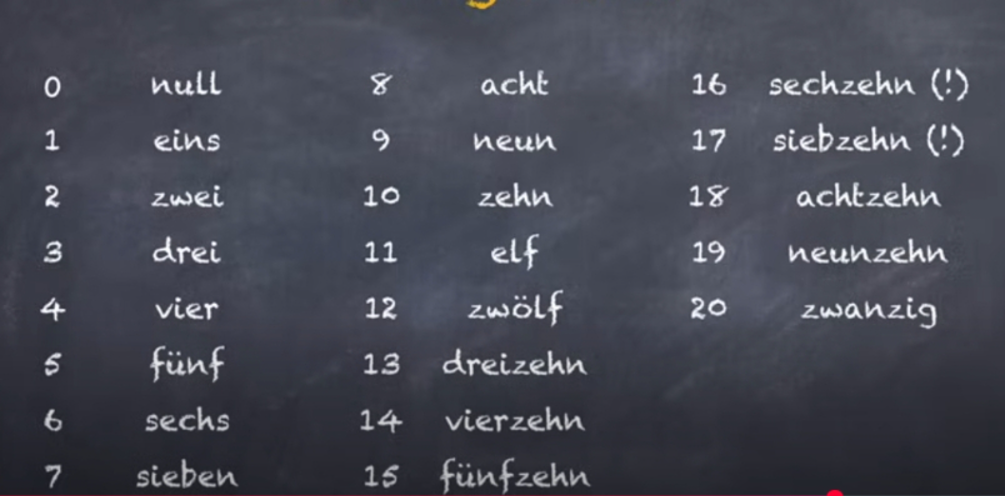 0 null 8 acht 16 sechzehn (!)
1 eins 9 neun 17 siebzehn (!)
2 zwei 10 zehn 18 achtzehn
3 drei 11 elf 19 neunzehn
4 vier 12 zwölf 20 zwanzig
5 fünf 13 dreizehn
6 sechs 14 vierzehn
7 sieben 15 fünfzehn